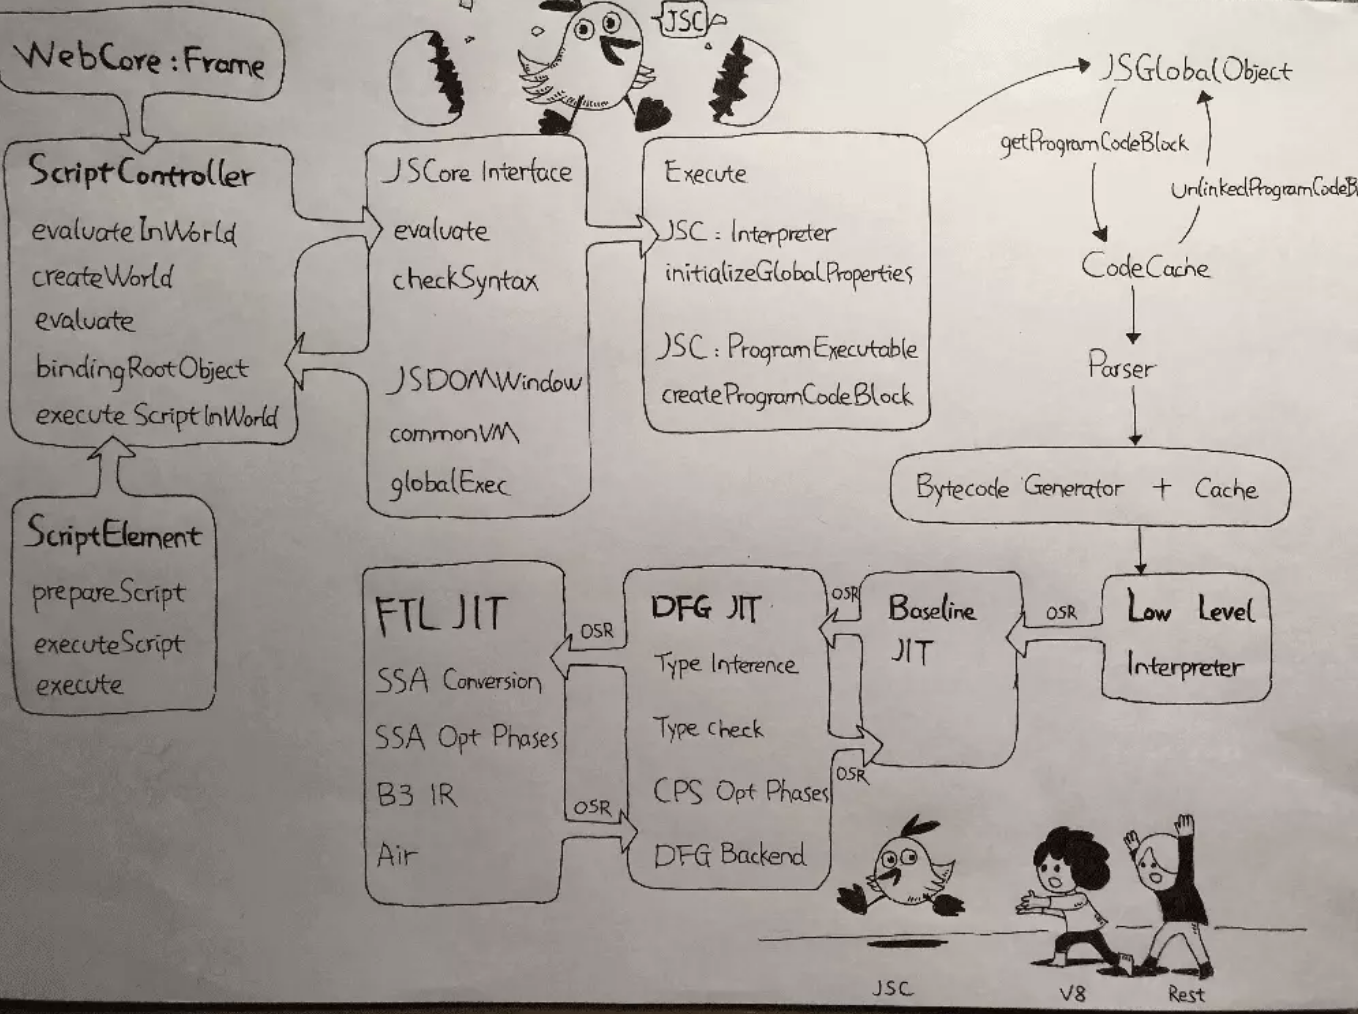 {JSC}
WebCore : Frame
ScriptController
evaluateInWorld
createWorld
evaluate
bindingRootObject
execute ScriptInWorld
ScriptElement
prepareScript
executeScript
execute
JSCore Interface
evaluate
checkSyntax
JSDOMWindow
commonVM
globalExec
Execute
JSC : Interpreter
initializeGlobalProperties
JSC : ProgramExecutable
createProgramCodeBlock
JSGlobalObject
getProgramCodeBlock
UnlinkedProgramCodeB
CodeCache
Parser
Bytecode Generator + Cache
Low Level
Interpreter
OSR
Baseline
JIT
OSR
OSR
DFG JIT
Type Inference
Type check
CPS Opt Phases
DFG Backend
OSR
OSR
FTL JIT
SSA Conversion
SSA Opt Phases
B3 IR
Air
JSC
V8
Rest